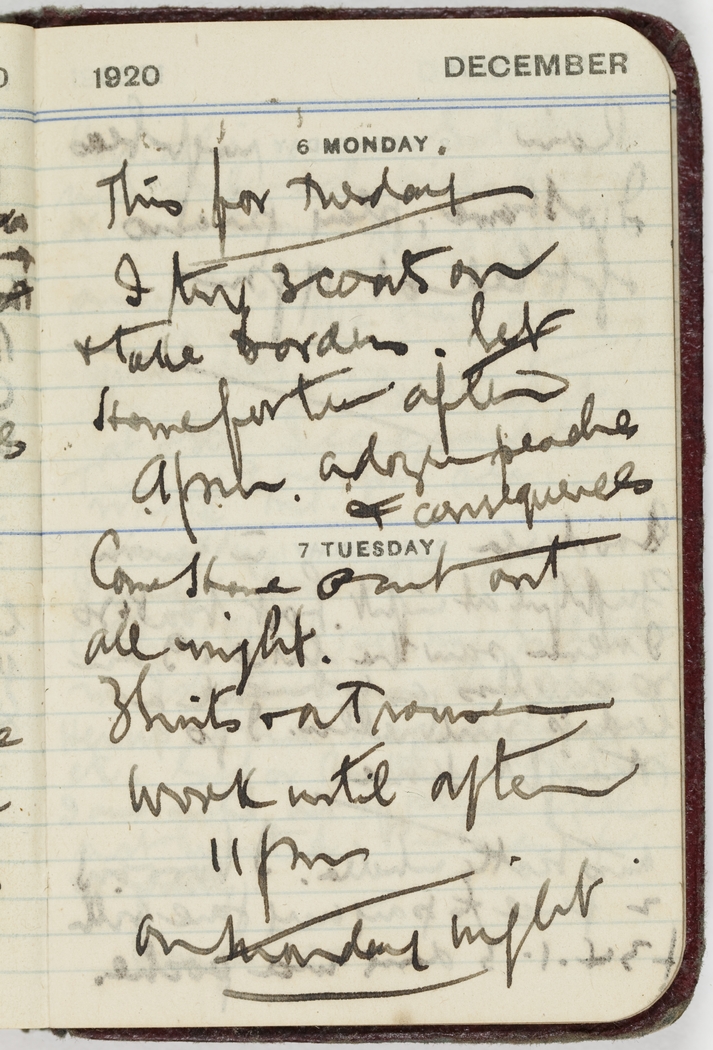 1920 DECEMBER
6 MONDAY.
This for Tuesday
I try 3 coats on
+ take borders. Left
Home for tea after
4pm. a dozen peaches
& consequences
7 TUESDAY
Comes home & out
all night.
3 hints
work until after
11 pm
on Monday night